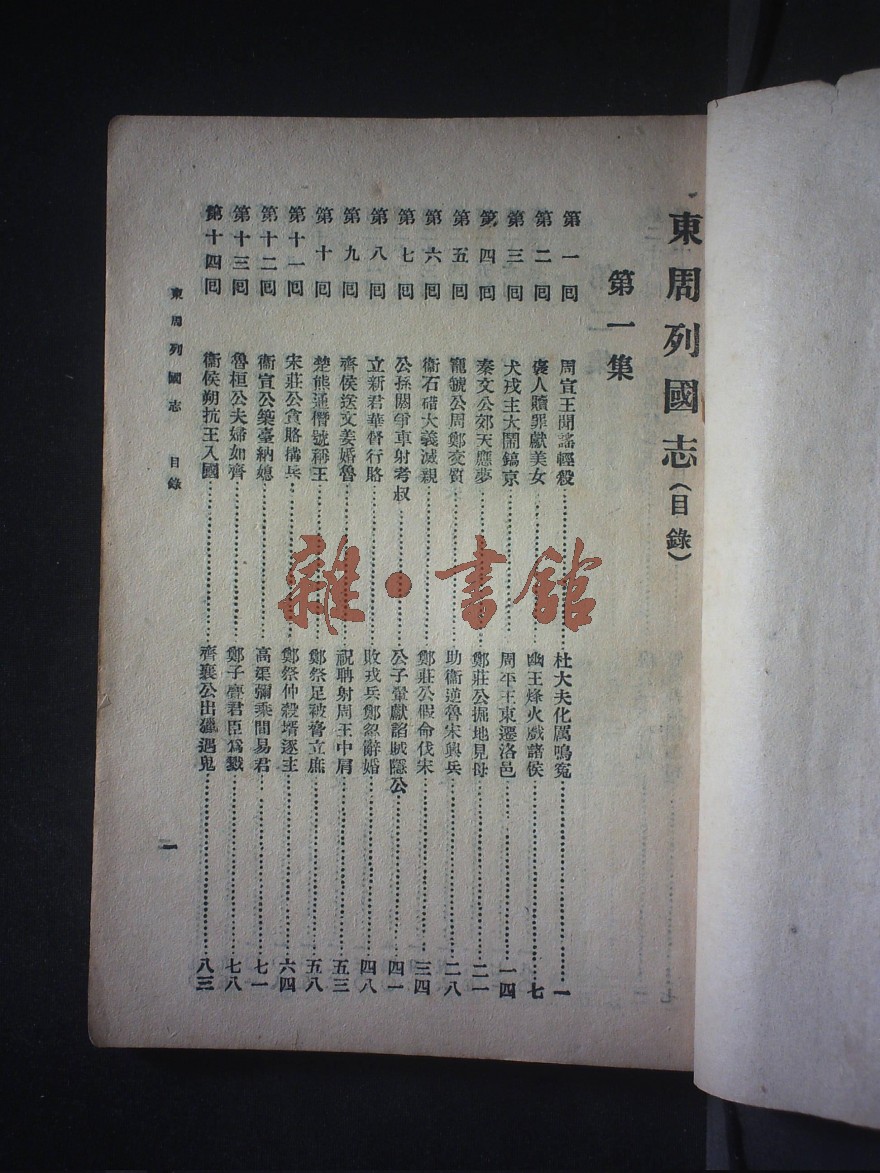 東周列國志(目錄)
第一集
第一回 周宣王聞謠輕殺 杜大夫化厲鳴冤 一
第二回 褒人贖罪獻美女 幽王烽火戲諸侯 七
第三回 犬戎主大鬧鎬京 周平王東遷洛邑 一四
第四回 秦文公郊天應夢 鄭莊公掘地見母 二一
第五回 寵虢公周鄭交質 助衞逆魯宋興兵 二八
第六回 衞石碏大義滅親 鄭莊公假命伐宋 三四
第七回 公孫閼爭車射考叔 公子翬獻諂賊隱公 四一
第八回 立新君華督行賂 敗戎兵鄭忽辭婚 四八
第九回 齊侯送文姜婚魯 祝聃射周王中肩 五三
第十回 楚熊通僭號稱王 鄭祭足被脅立庶 五八
第十一回 宋莊公貪賂搆兵 鄭祭仲殺壻逐主 六四
第十二回 衞宣公築臺納媳 高渠彌乘間易君 七一
第十三回 魯桓公夫婦如齊 鄭子亹君臣爲戮 七八
第十四回 衞侯朔抗王入國 齊襄公出獵遇鬼 八三
東周列國志 目錄
一
雜·書館